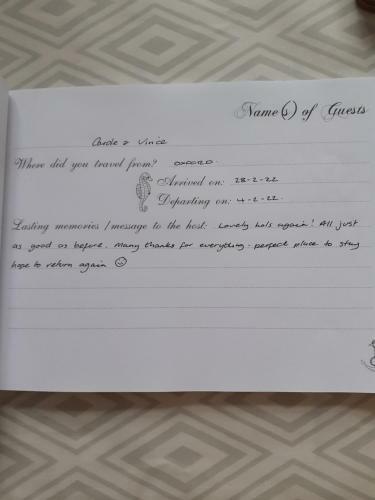 Name(s) of Guests
Carole & Vince
Where did you travel from? OXFORD.
Arrived on: 28-2-22
Departing on: 4-2-22.
Lasting memories / message to the host: Lovely hols again! All just
as good as before. Many thanks for everything: perfect place to stay
hope to return again ☺